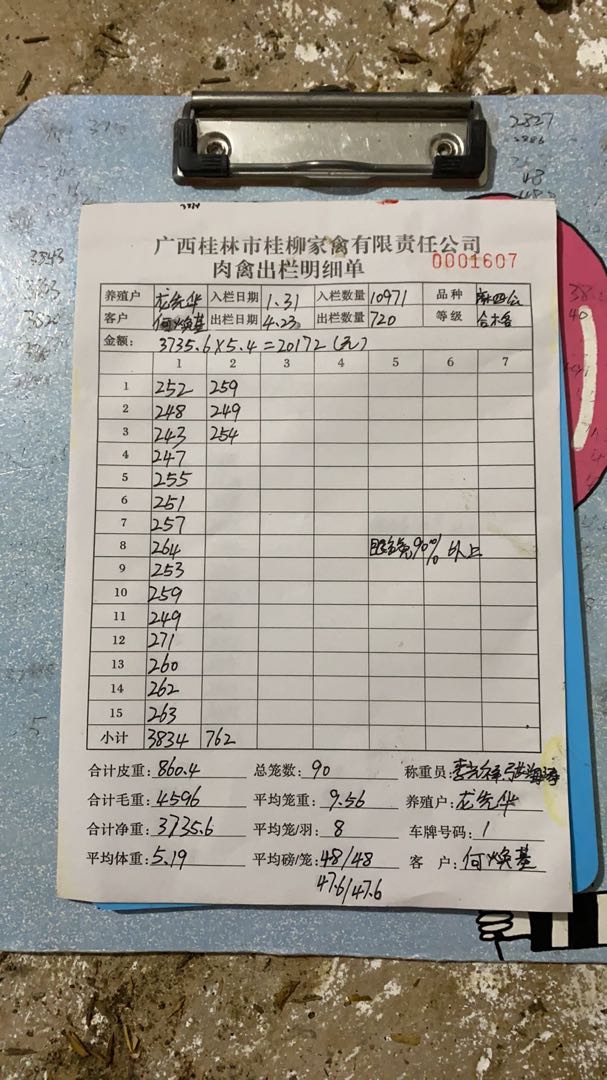 广西桂林市桂柳家禽有限责任公司
肉禽出栏明细单
0001607
养殖户 龙先华 入栏日期 1.31 入栏数量 10971 品种
客户 何焕基 出栏日期 4.23 出栏数量 720 等级 合格
金额: 3735.6×5.4=20172(元)
1 2 3 4 5 6 7
1 252 259
2 248 249
3 243 254
4 247
5 255
6 251
7 257
8 264 90% 以上
9 253
10 259
11 249
12 271
13 260
14 262
15 263
小计 3834 762
合计皮重: 860.4 总笼数: 90 称重员:
合计毛重: 4596 平均笼重: 9.56 养殖户: 龙先华
合计净重: 3735.6 平均笼/羽: 8 车牌号码: 1
平均体重: 5.19 平均磅/笼: 48/48 客 户: 何焕基
47.6/47.6
2827